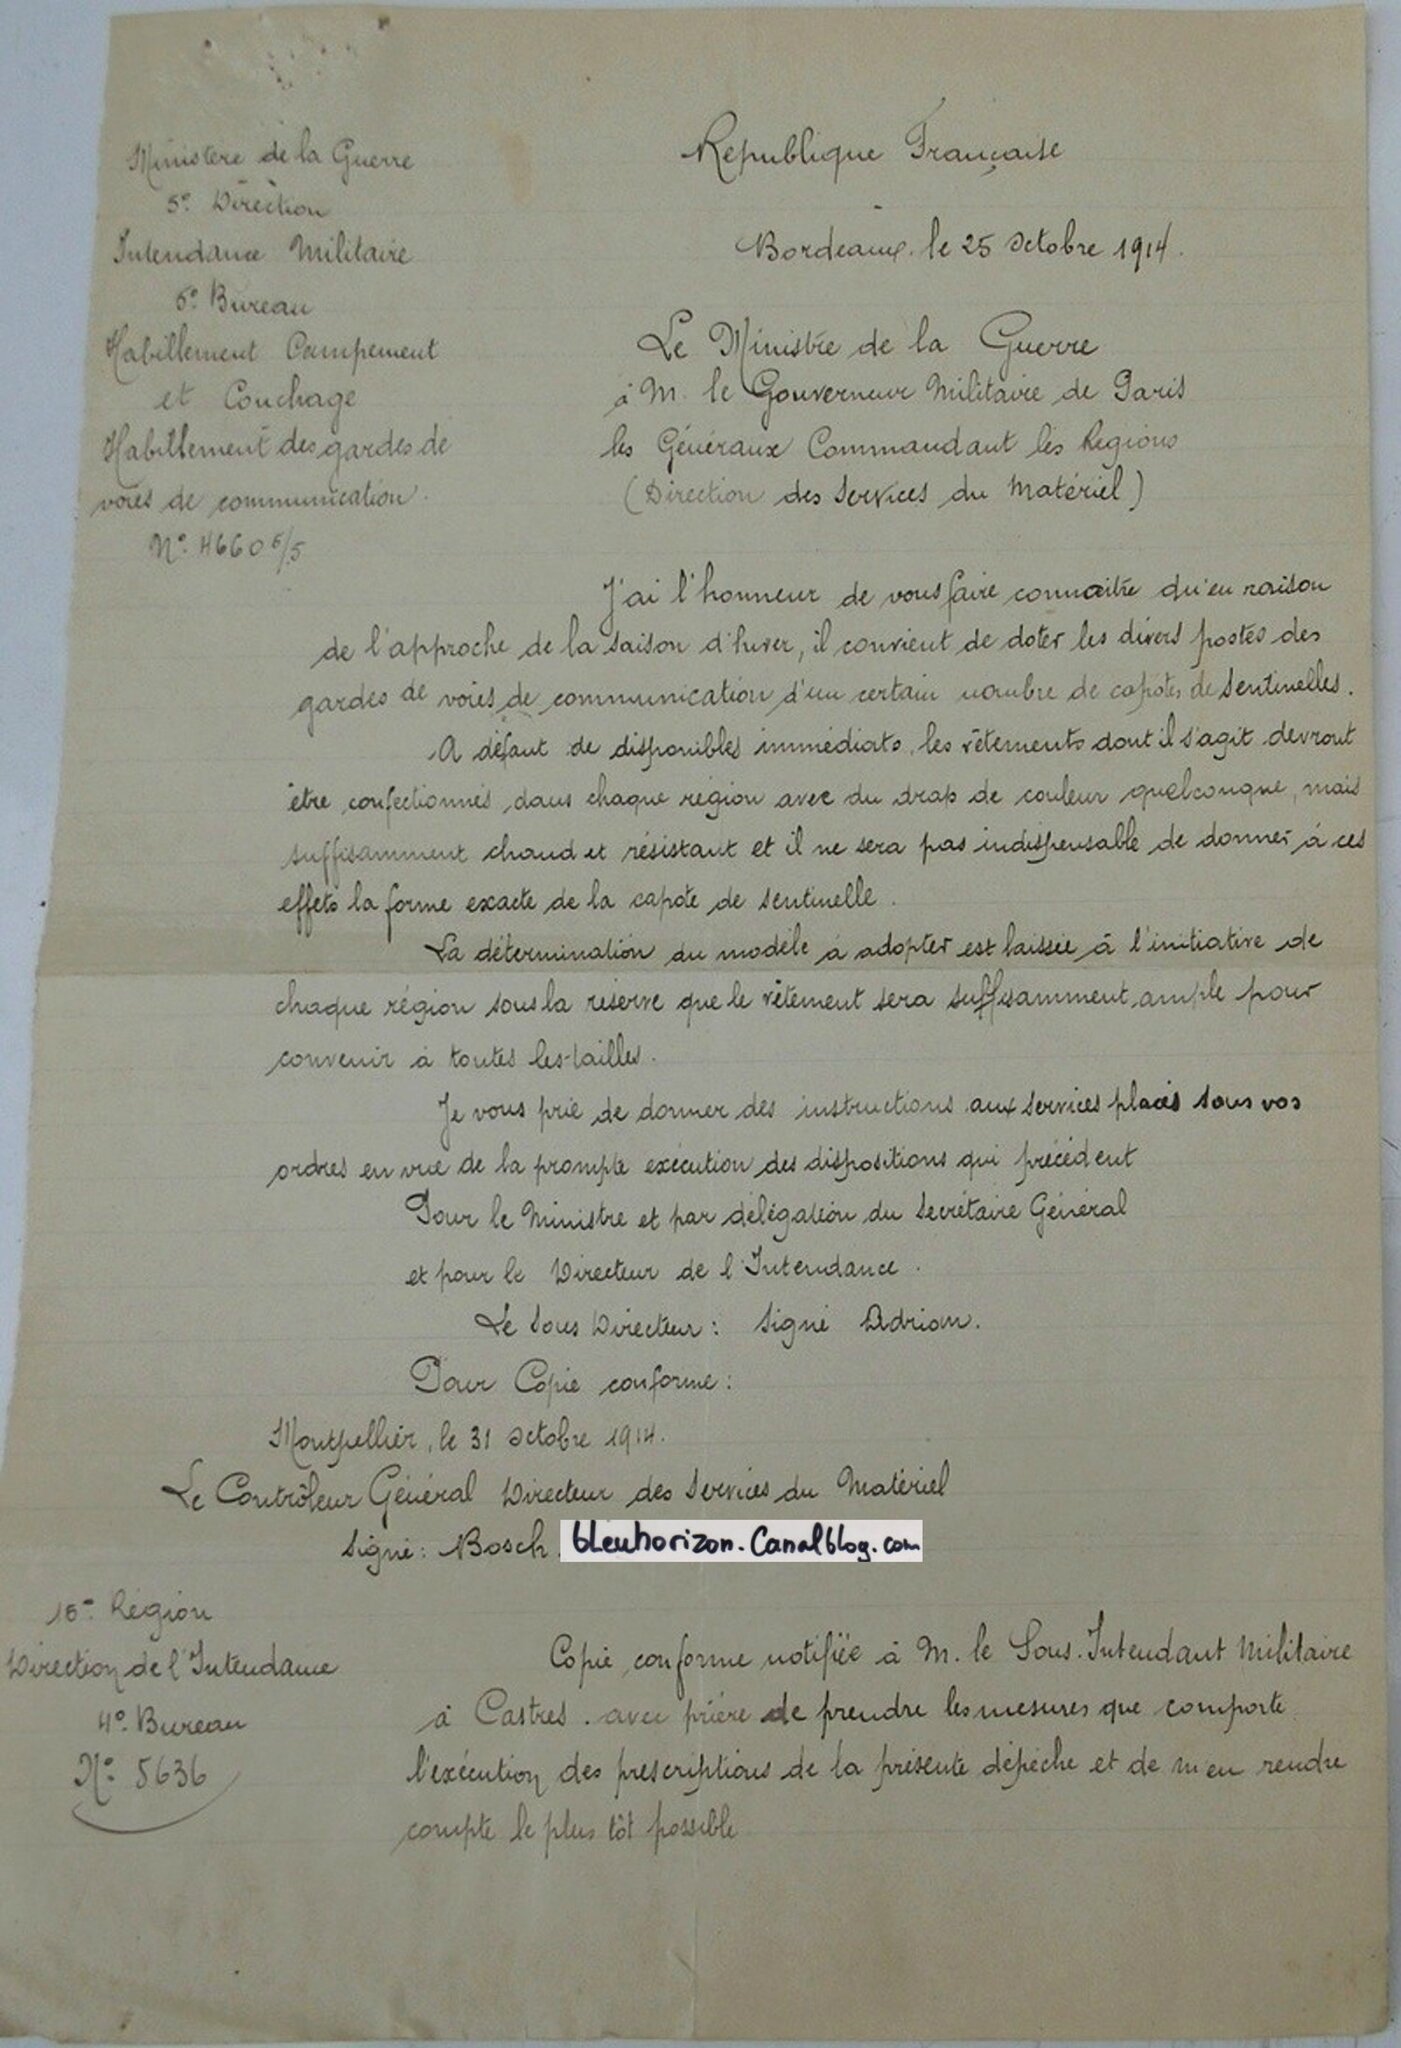 Ministère de la Guerre
5e Direction
Intendance Militaire
5e Bureau
Habillement Campement
et Couchage
Habillement des gardes de
voies de communication.
No 4660 5/5
Republique Française
Bordeaux. le 25 Octobre 1914.
Le Ministre de la Guerre
à M. le Gouverneur Militaire de Paris
les Généraux Commandant les Régions
(Direction des Services du Matériel)
J'ai l'honneur de vous faire connaître qu'en raison
de l'approche de la saison d'hiver, il convient de doter les divers postes des
gardes de voies de communication d'un certain nombre de capotes de sentinelles.
A défaut de disponibles immédiats, les vêtements dont il s'agit devront
être confectionnés dans chaque région avec du drap de couleur quelconque, mais
suffisamment chaud et résistant et il ne sera pas indispensable de donner à ces
effets la forme exacte de la capote de sentinelle.
La détermination du modèle à adopter est laissée à l'initiative de
chaque région sous la réserve que le vêtement sera suffisamment ample pour
convenir à toutes les tailles.
Je vous prie de donner des instructions aux services placés sous vos
ordres en vue de la prompte exécution des dispositions qui précédent
Pour le Ministre et par délégation du Secrétaire Général
et pour le Directeur de l'Intendance.
Le Sous Directeur: Signé Adrian.
Pour Copie conforme:
Montpellier, le 31 Octobre 1914.
Le Contrôleur Général Directeur des Services du Matériel
Signé: Bosch.
bleuhorizon.canalblog.com
16e Région
Direction de l'Intendance
4e Bureau
No 5636
Copie conforme notifiée à M. le Sous-Intendant Militaire
à Castres. avec prière de prendre les mesures que comporte
l'exécution des prescriptions de la présente dépêche et de m'en rendre
compte le plus tôt possible